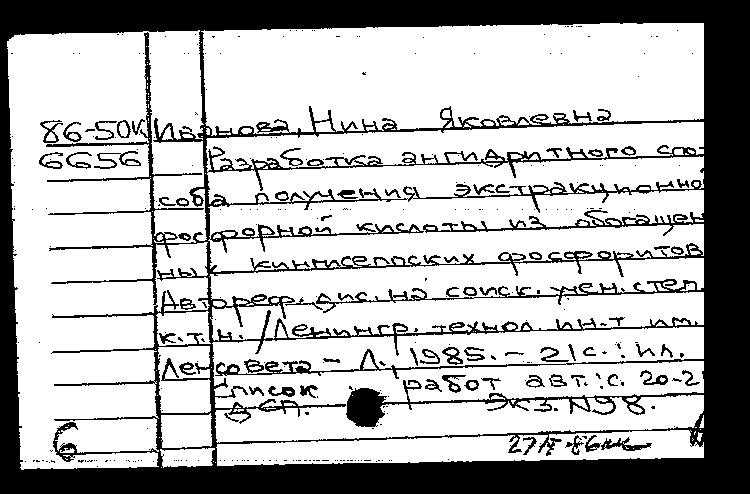 86-50к Иванова, Нина Яковлевна
6656 Разработка ангидритного спо-
соба получения экстракционной
фосфорной кислоты из обогащен-
ных кингисепских фосфоритов
Автореф. дис. на соиск. учен. степ.
к.т.н. /Ленингр. технол. ин-т им.
Ленсовета. - Л., 1985. - 21с.: ил.
Список работ авт.: с. 20-21
ДСП. Экз. N98.
6 27/V-86